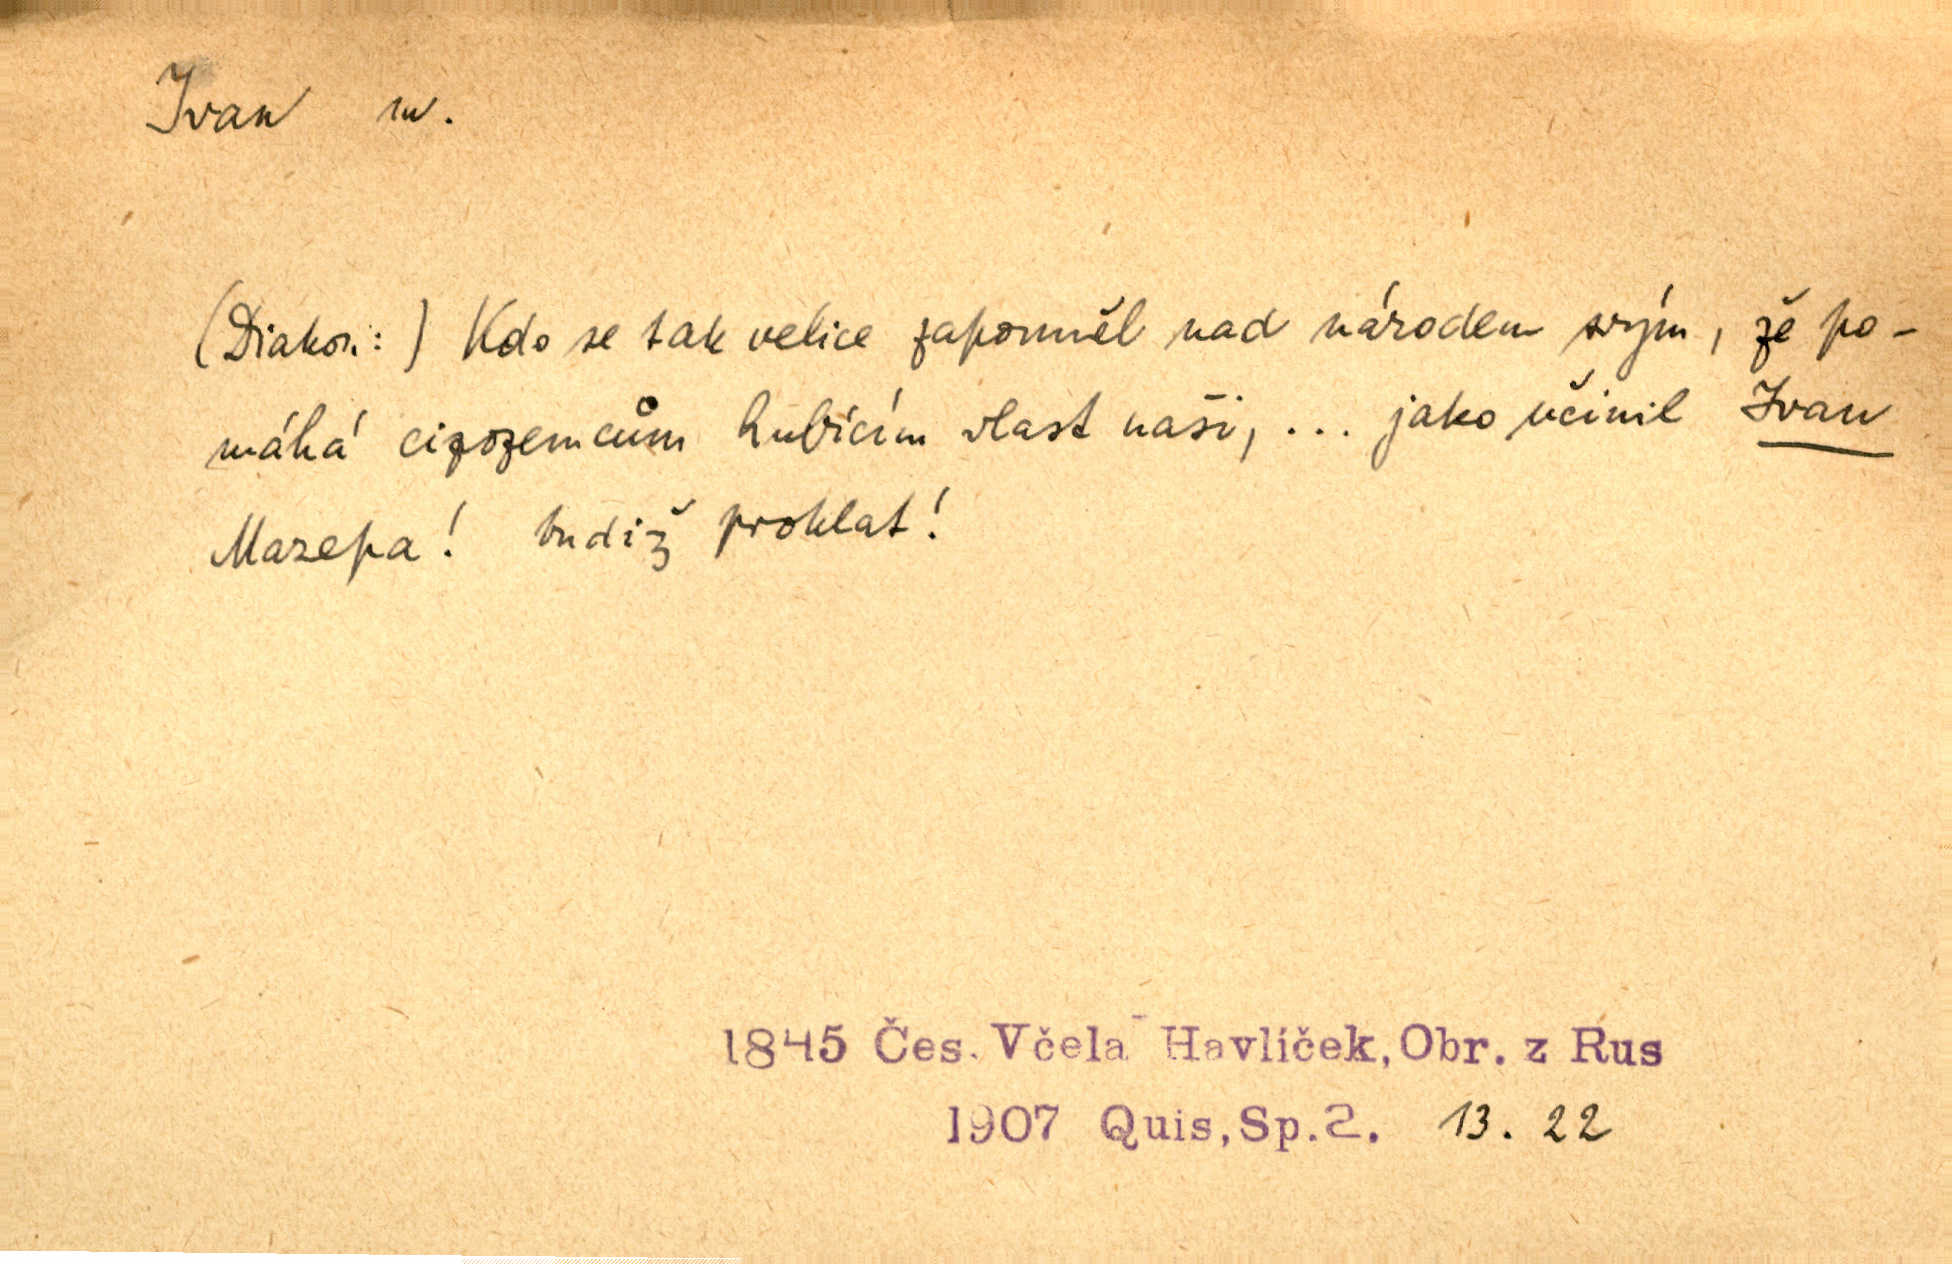 Ivan m.
(Diakon:) Kdo se tak velice zapomněl nad národem svým, že po-
máhá cizozemcům hubícím vlast naši, ... jako učinil Ivan
Mazepa! budiž proklat!
1845 Čes. Včela - Havlíček, Obr. z Rus
1907 Quis, Sp.2. 13. 22